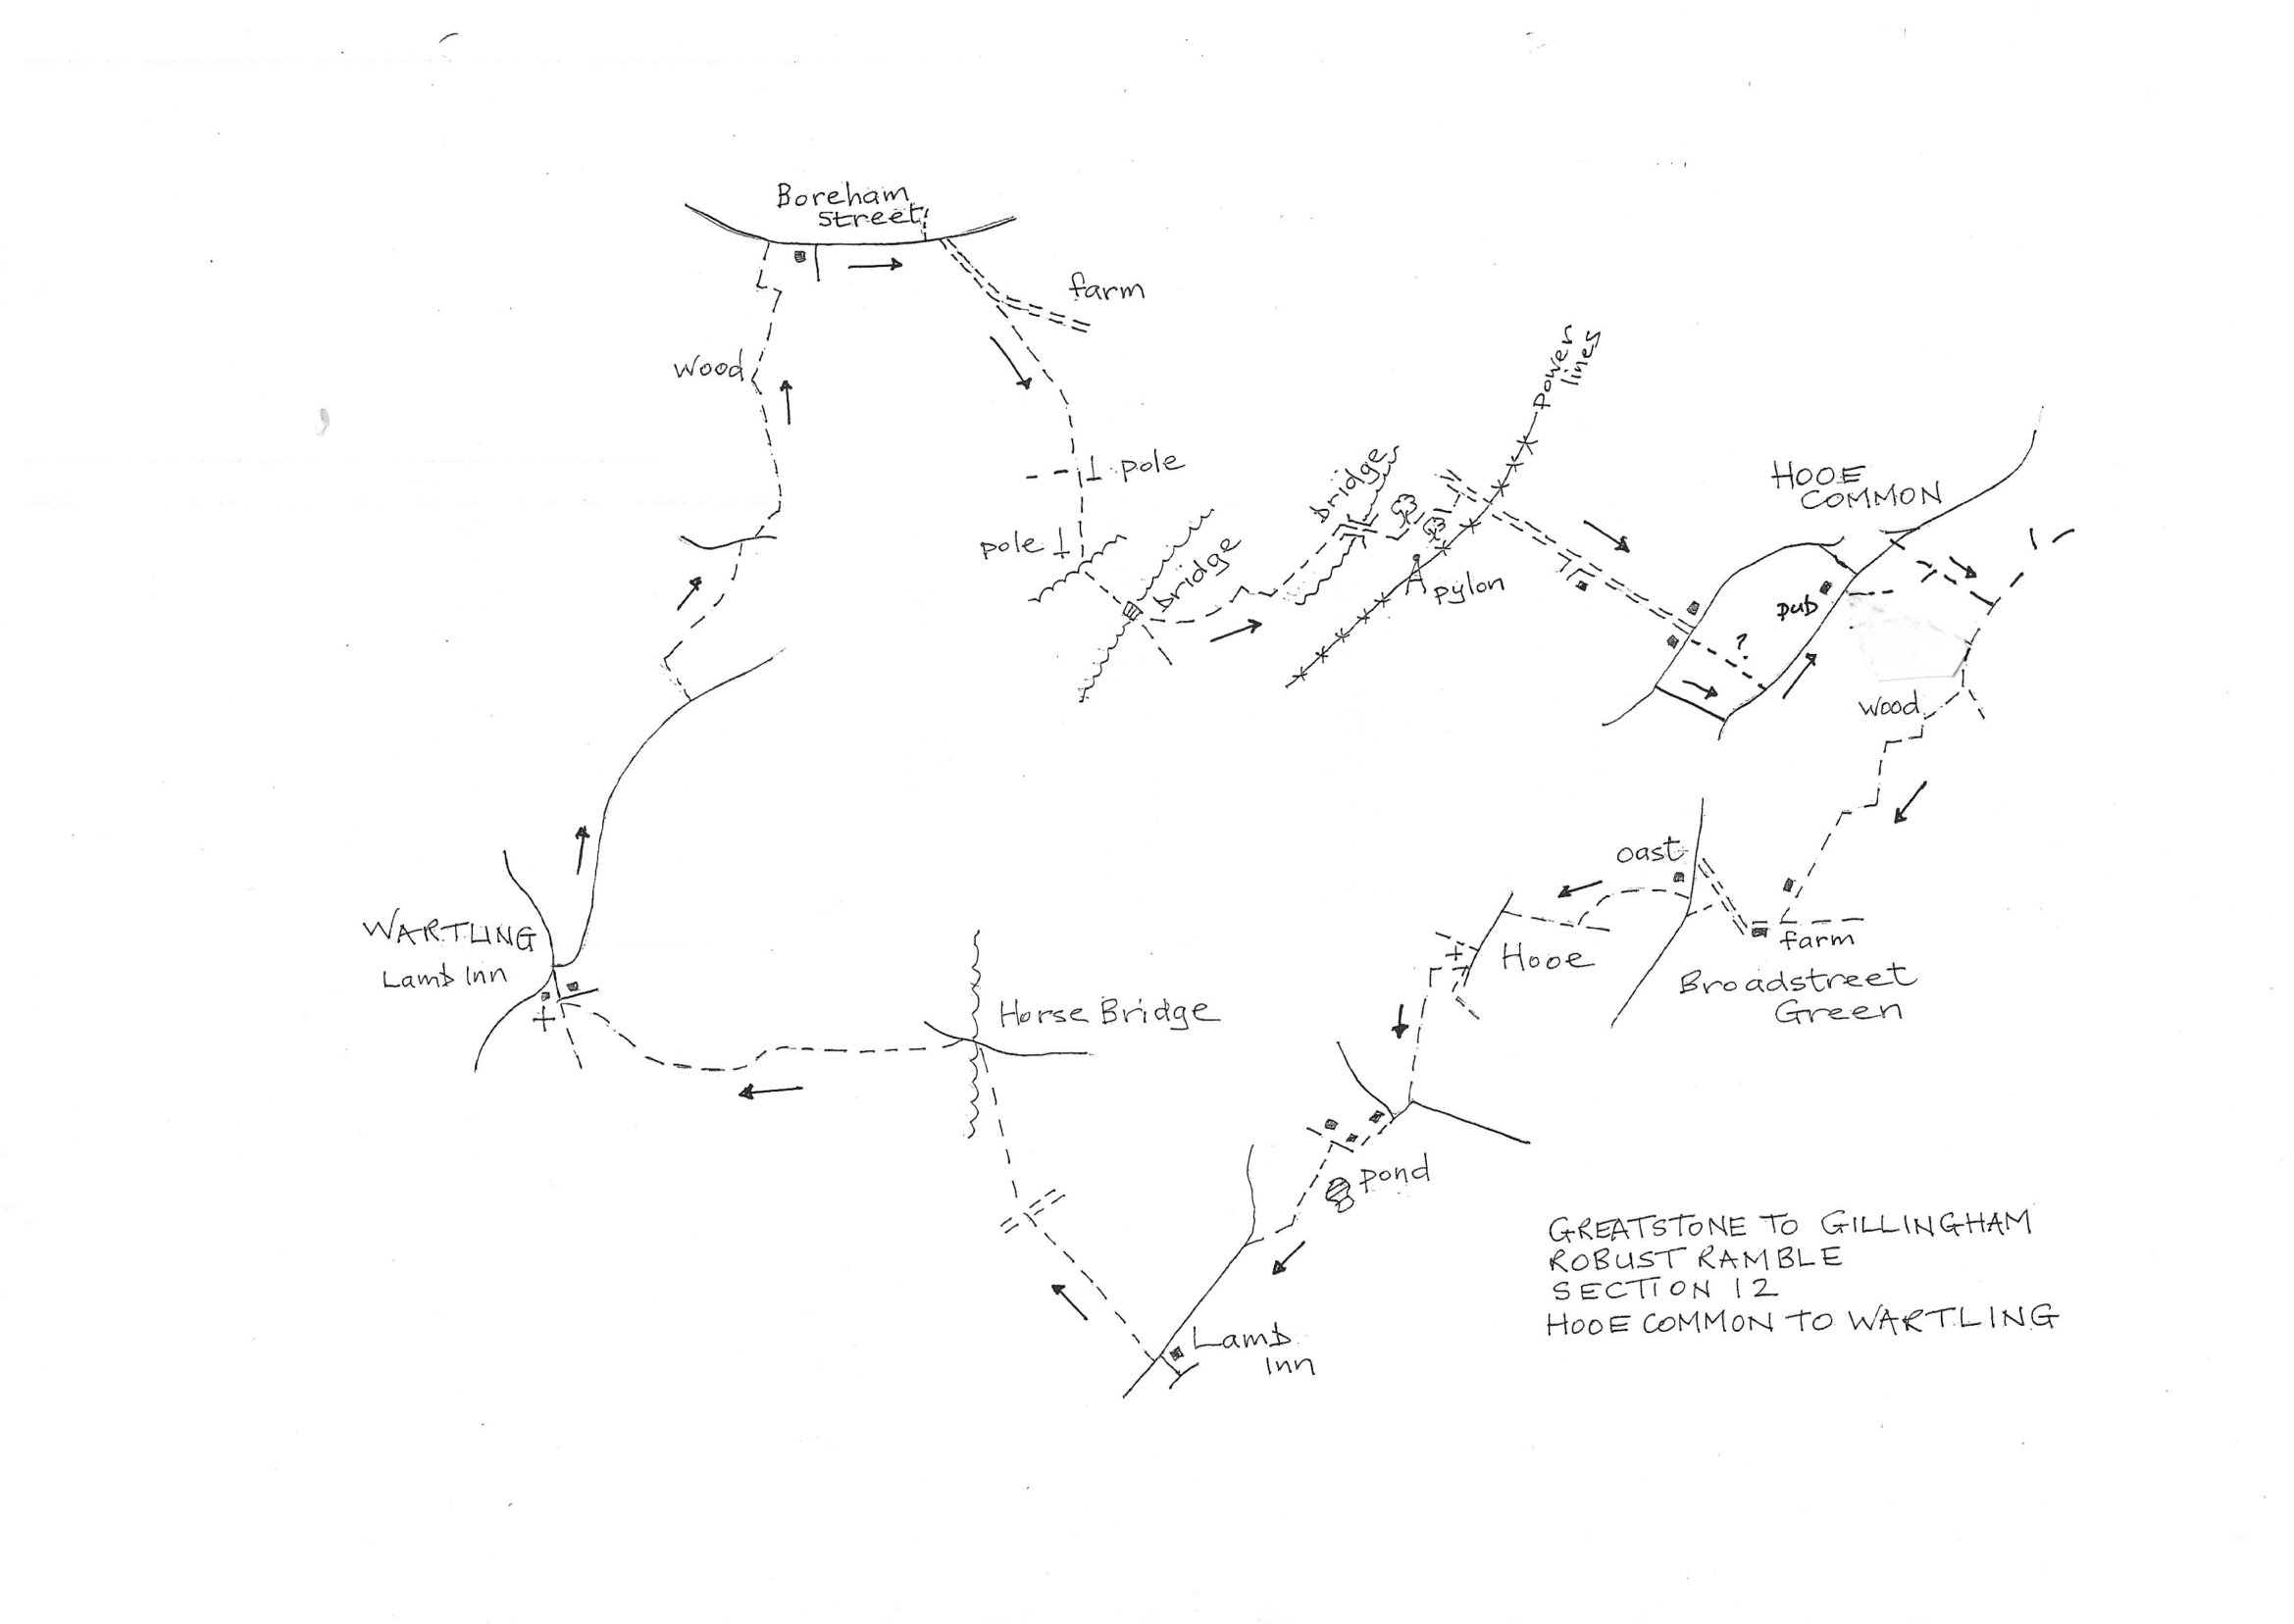 Boreham
Street
farm
Wood
pole
pole
bridge
bridge
Power
lines
pylon
HOOE
COMMON
pub
?
Wood
oast
Hooe
farm
Broadstreet
Green
WARTLING
Lamb Inn
Horse Bridge
pond
Lamb
Inn
GREATSTONE TO GILLINGHAM
ROBUST RAMBLE
SECTION 12
HOOE COMMON TO WARTLING